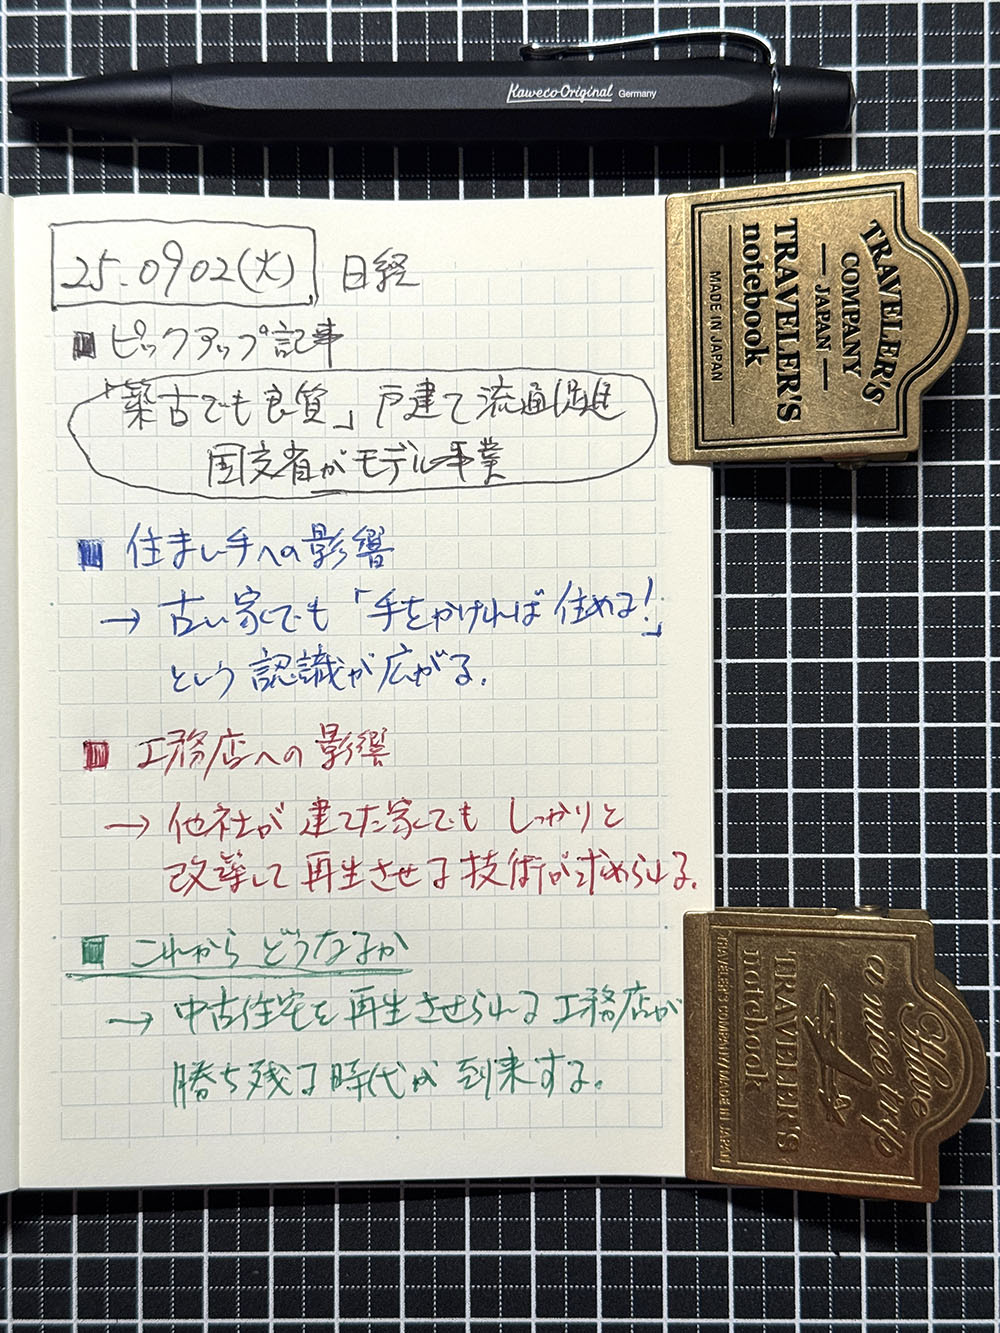 Kaweco Original Germany
25.0902(火) 日経
■ピックアップ記事
「築古でも良質」戸建て流通促進
国交省がモデル事業
■住まい手への影響
→古い家でも「手をかければ住める!」
という認識が広がる。
■工務店への影響
→他社が建てた家でもしっかりと
改築して再生させる技術が求められる。
■これからどうなるか
→中古住宅を再生させられる工務店が
勝ち残る時代が到来する。
TRAVELER'S
COMPANY
— JAPAN —
TRAVELER'S
notebook
MADE IN JAPAN
Have
a nice trip
TRAVELER'S
notebook
TRAVELER'S COMPANY MADE IN JAPAN